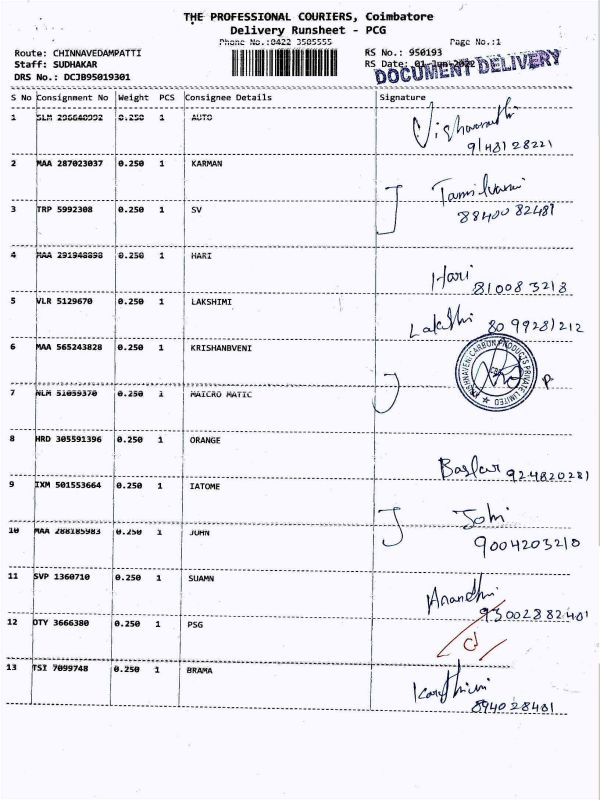 THE PROFESSIONAL COURIERS, Coimbatore
Delivery Runsheet - PCG
Phone No.:0422 3505555
Page No.:1
Route: CHINNAVEDAMPATTI
RS No.: 950193
Staff: SUDHAKAR
RS Date: 01-Jun-2022
DOCUMENT DELIVERY
DRS No.: DCJB95019301
S No Consignment No Weight PCS Consignee Details Signature
1 SLM 296640992 0.250 1 AUTO
9148128221
2 MAA 287023037 0.250 1 KARMAN
Tamilvani
3 TRP 5992308 0.250 1 SV
8840082481
4 MAA 291948898 0.250 1 HARI
Hari
810083218
5 VLR 5129670 0.250 1 LAKSHIMI
Lakshi 8099281212
6 MAA 565243828 0.250 1 KRISHANBVENI
KRISHNAVENI CARBON PRODUCTS PRIVATE LIMITED
7 NLM 51059370 0.250 1 MAICRO MATIC
8 HRD 305591396 0.250 1 ORANGE
Baskar 924820281
9 IXM 501553664 0.250 1 IATOME
John
10 MAA 288185983 0.250 1 JOHN
9004203210
11 SVP 1360710 0.250 1 SUAMN
Anandhi
93002882401
12 OTY 3666380 0.250 1 PSG
13 TSI 7099748 0.250 1 BRAMA
894028401